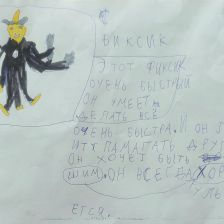 ФИКСИК
ЭТОТ ФИКСИК
ОЧЕНЬ БЫСТРЫЙ
ОН УМЕЕТ
ДЕЛАТЬ ВСЁ
ОЧЕНЬ БЫСТРА. И ОН
ПАМАГАТЬ ДРУГ
ОН ХОЧЕТ БЫТЬ
ШИМ. ОН ВСЕГДА ХОР
УЛЫ
ЕТСЯ.